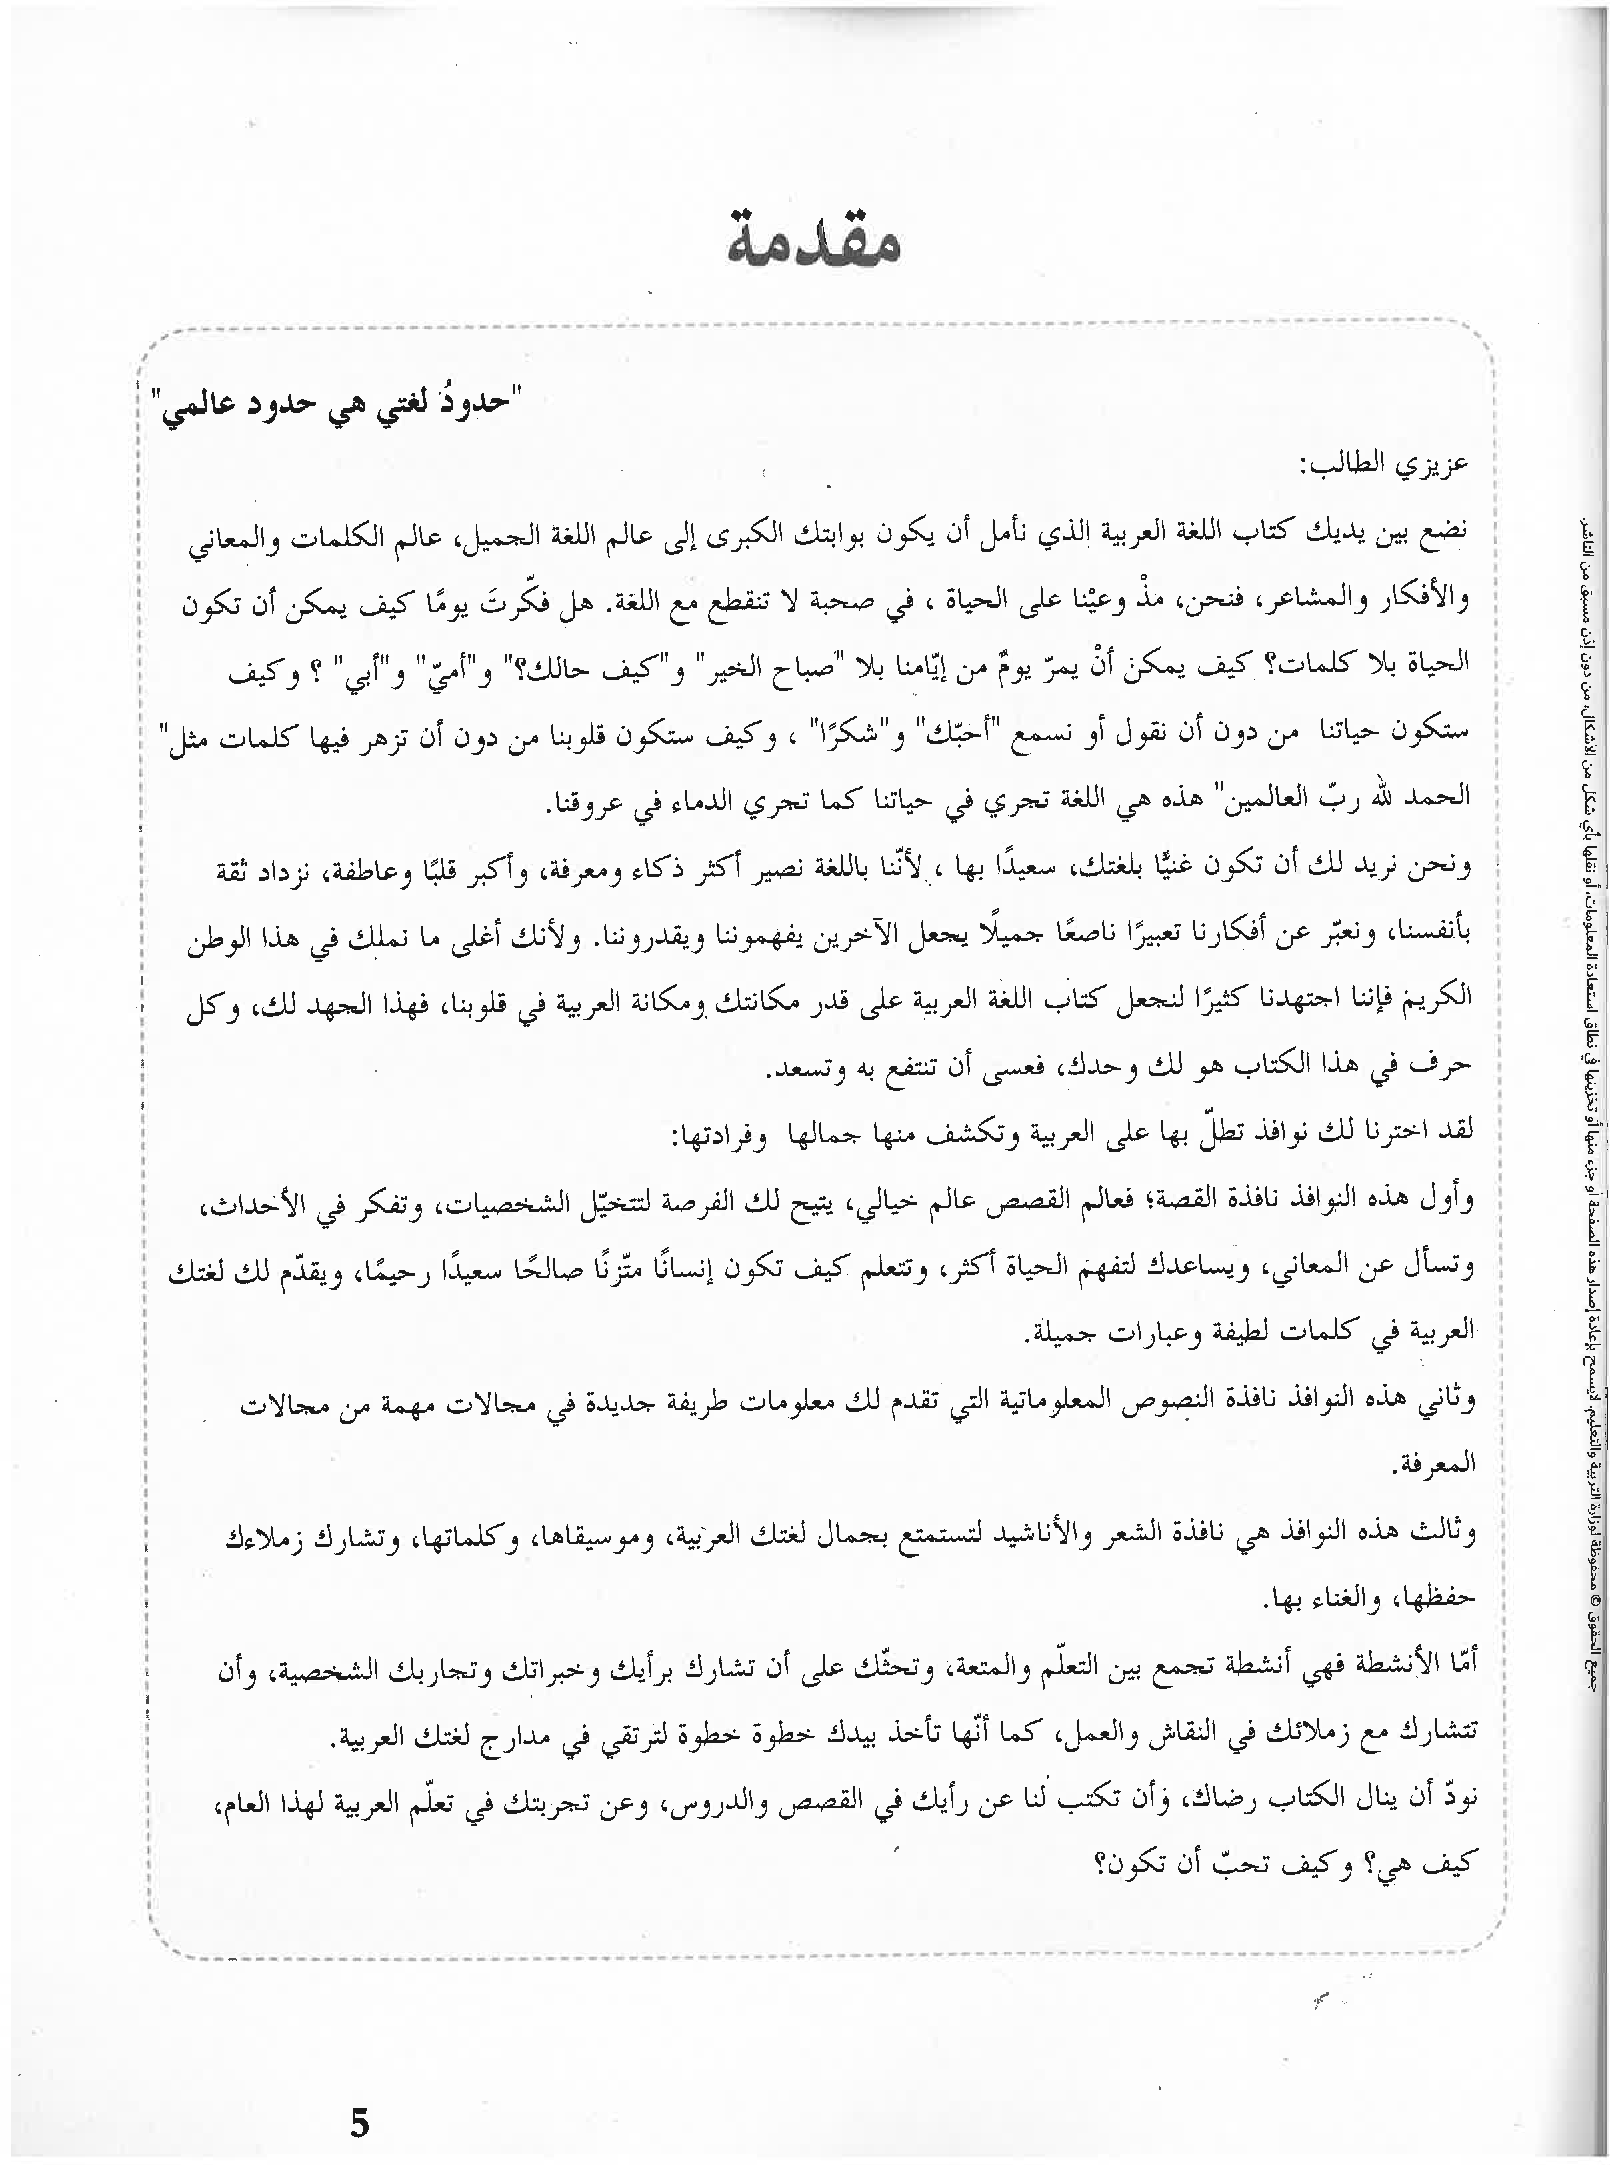 مقدمة
"حدودُ لغتي هي حدود عالمي"
عزيزي الطالب:
نضع بين يديك كتاب اللغة العربية الذي نأمل أن يكون بوابتك الكبرى إلى عالم اللغة الجميل، عالم الكلمات والمعاني
والأفكار والمشاعر، فنحن، مذْ وعيْنا على الحياة ، في صحبة لا تنقطع مع اللغة. هل فكّرتَ يومًا كيف يمكن أن تكون
الحياة بلا كلمات؟ كيف يمكن أنْ يمرّ يومٌ من إيّامنا بلا "صباح الخير" و"كيف حالك؟" و"أميّ" و"أبي" ؟ وكيف
ستكون حياتنا من دون أن نقول أو نسمع "أحبّك" و"شكرًا" ، وكيف ستكون قلوبنا من دون أن تزهر فيها كلمات مثل"
الحمد لله ربّ العالمين" هذه هي اللغة تجري في حياتنا كما تجري الدماء في عروقنا.
ونحن نريد لك أن تكون غنيًّا بلغتك، سعيدًا بها ، لأنّنا باللغة نصير أكثر ذكاء ومعرفة، وأكبر قلبًا وعاطفة، نزداد ثقة
بأنفسنا، ونعبّر عن أفكارنا تعبيرًا ناصعًا جميلًا يجعل الآخرين يفهموننا ويقدروننا. ولأنك أغلى ما نملك في هذا الوطن
الكريم فإننا اجتهدنا كثيرًا لنجعل كتاب اللغة العربية على قدر مكانتك ومكانة العربية في قلوبنا، فهذا الجهد لك، وكل
حرف في هذا الكتاب هو لك وحدك، فعسى أن تنتفع به وتسعد.
لقد اخترنا لك نوافذ تطلّ بها على العربية وتكشف منها جمالها وفرادتها:
وأول هذه النوافذ نافذة القصة؛ فعالم القصص عالم خيالي، يتيح لك الفرصة لتتخيّل الشخصيات، وتفكر في الأحداث،
وتسأل عن المعاني، ويساعدك لتفهم الحياة أكثر، وتتعلم كيف تكون إنسانًا متّزنًا صالحًا سعيدًا رحيمًا، ويقدّم لك لغتك
العربية في كلمات لطيفة وعبارات جميلة.
وثاني هذه النوافذ نافذة النصوص المعلوماتية التي تقدم لك معلومات طريفة جديدة في مجالات مهمة من مجالات
المعرفة.
وثالث هذه النوافذ هي نافذة الشعر والأناشيد لتستمتع بجمال لغتك العربية، وموسيقاها، وكلماتها، وتشارك زملاءك
حفظها، والغناء بها.
أمّا الأنشطة فهي أنشطة تجمع بين التعلّم والمتعة، وتحثّك على أن تشارك برأيك وخبراتك وتجاربك الشخصية، وأن
تتشارك مع زملائك في النقاش والعمل، كما أنّها تأخذ بيدك خطوة خطوة لترتقي في مدارج لغتك العربية.
نودّ أن ينال الكتاب رضاك، وأن تكتب لنا عن رأيك في القصص والدروس، وعن تجربتك في تعلّم العربية لهذا العام،
كيف هي؟ وكيف تحبّ أن تكون؟
جميع الحقوق © محفوظة لوزارة التربية والتعليم. لايسمح بإعادة إصدار هذه الصفحة أو جزء منها أو تخزينها في نطاق استعادة المعلومات، أو نقلها بأي شكل من الأشكال، من دون إذن مسبق من الناشر.
5